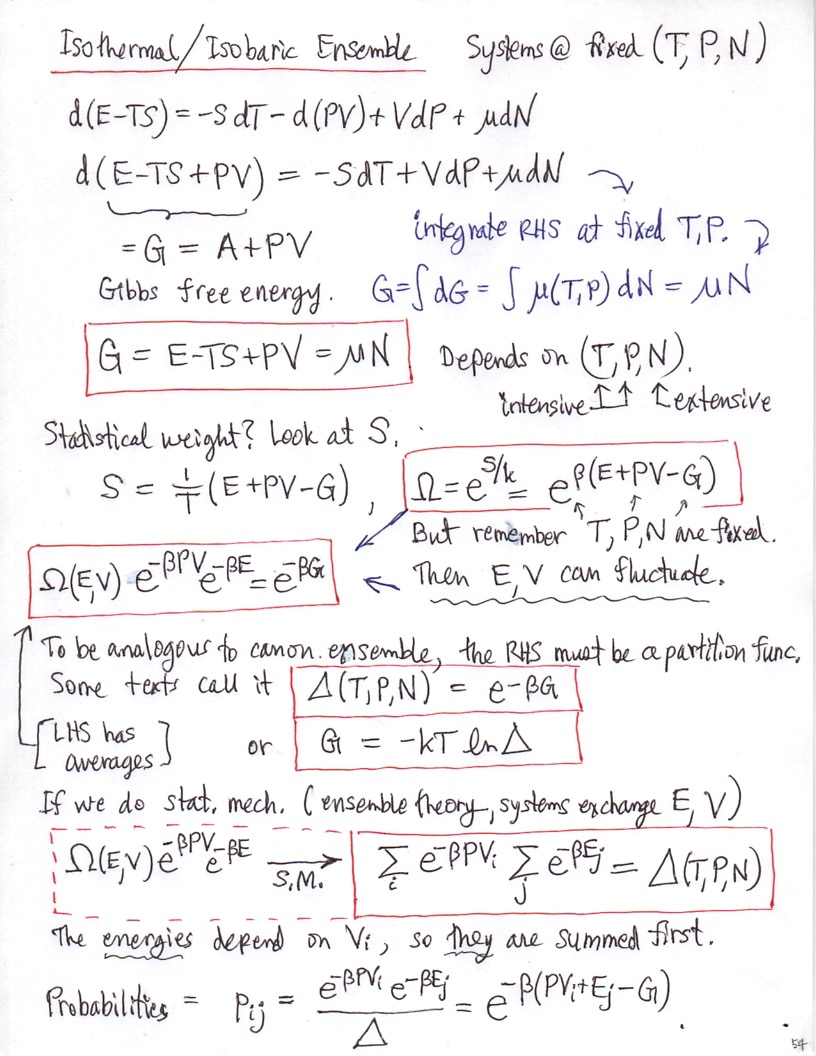 Isothermal/Isobaric Ensemble Systems @ fixed (T, P, N)
d(E-TS) = -SdT - d(PV) + VdP + μdN
d(E-TS+PV) = -SdT + VdP + μdN
= G = A+PV
integrate RHS at fixed T,P.
Gibbs free energy. G = ∫dG = ∫μ(T,P) dN = μN
G = E-TS+PV = μN Depends on (T,P,N).
intensive ↑↑ ↑extensive
Statistical weight? Look at S.
S = 1/T (E+PV-G) , Ω = e^{S/k} = e^{β(E+PV-G)}
But remember T, P, N are fixed.
Ω(E,V) e^{-βPV} e^{-βE} = e^{-βG} ← Then E, V can fluctuate.
To be analogous to canon. ensemble, the RHS must be a partition func.
Some texts call it Δ(T,P,N) = e^{-βG}
[LHS has averages] or G = -kT ln Δ
If we do stat. mech. (ensemble theory, systems exchange E, V)
Ω(E,V) e^{-βPV} e^{-βE} →S.M. Σ_i e^{-βPV_i} Σ_j e^{-βE_j} = Δ(T,P,N)
The energies depend on V_i, so they are summed first.
Probabilities = P_{ij} = e^{-βPV_i} e^{-βE_j} / Δ = e^{-β(PV_i+E_j-G)}
54